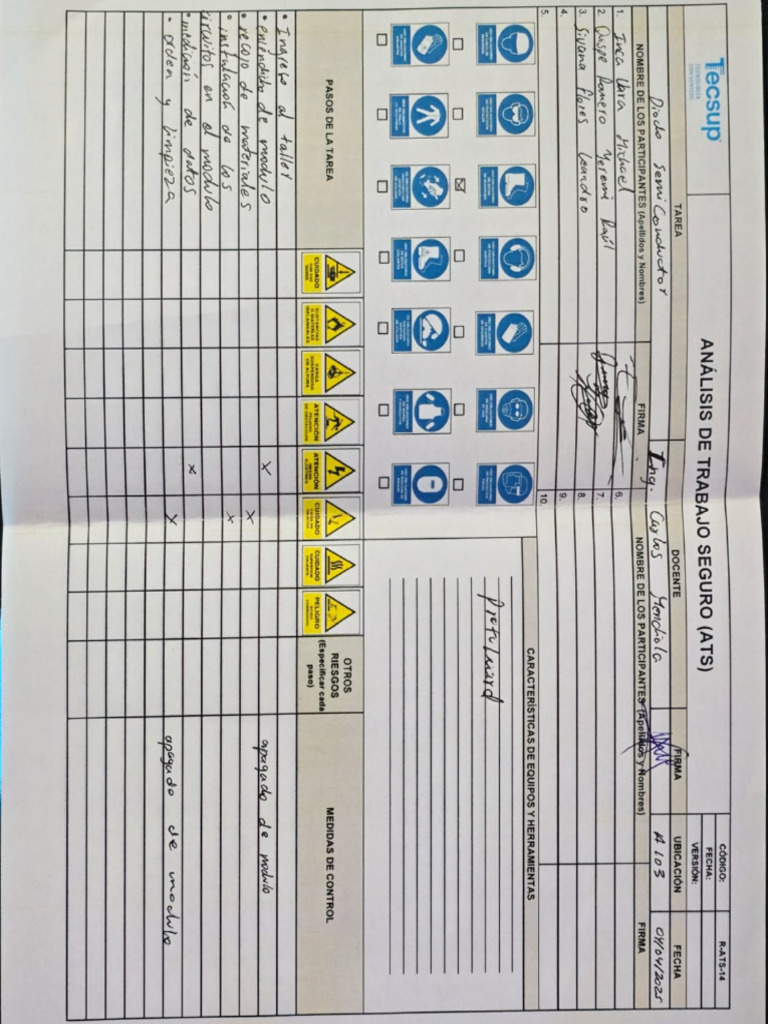 Tecsup
ANÁLISIS DE TRABAJO SEGURO (ATS)
CÓDIGO: R-ATS-14
FECHA:
VERSIÓN:
TAREA DOCENTE FIRMA UBICACIÓN FECHA
Diodo Semi Conductor Ing. Carlos Mendiola A 103 04/04/2025
NOMBRE DE LOS PARTICIPANTES (Apellidos y Nombres) FIRMA NOMBRE DE LOS PARTICIPANTES (Apellidos y Nombres) FIRMA
1. Inca Vera Michael 6.
2. Quispe Romero Yeremi Raúl 7.
3. Sivana Flores Leandro 8.
4. 9.
5. 10.
CARACTERÍSTICAS DE EQUIPOS Y HERRAMIENTAS
PASOS DE LA TAREA
CUIDADO
ATENCIÓN
ATENCIÓN
CUIDADO
CUIDADO
PELIGRO
OTROS
RIESGOS
(Especificar cada
paso)
MEDIDAS DE CONTROL
• Ingreso al taller
• encendido de modulo x apagado de modulo
• recojo de materiales x
• instalación de los x
circuitos en el modulo
• medición de datos x
• orden y limpieza x apagado de modulo